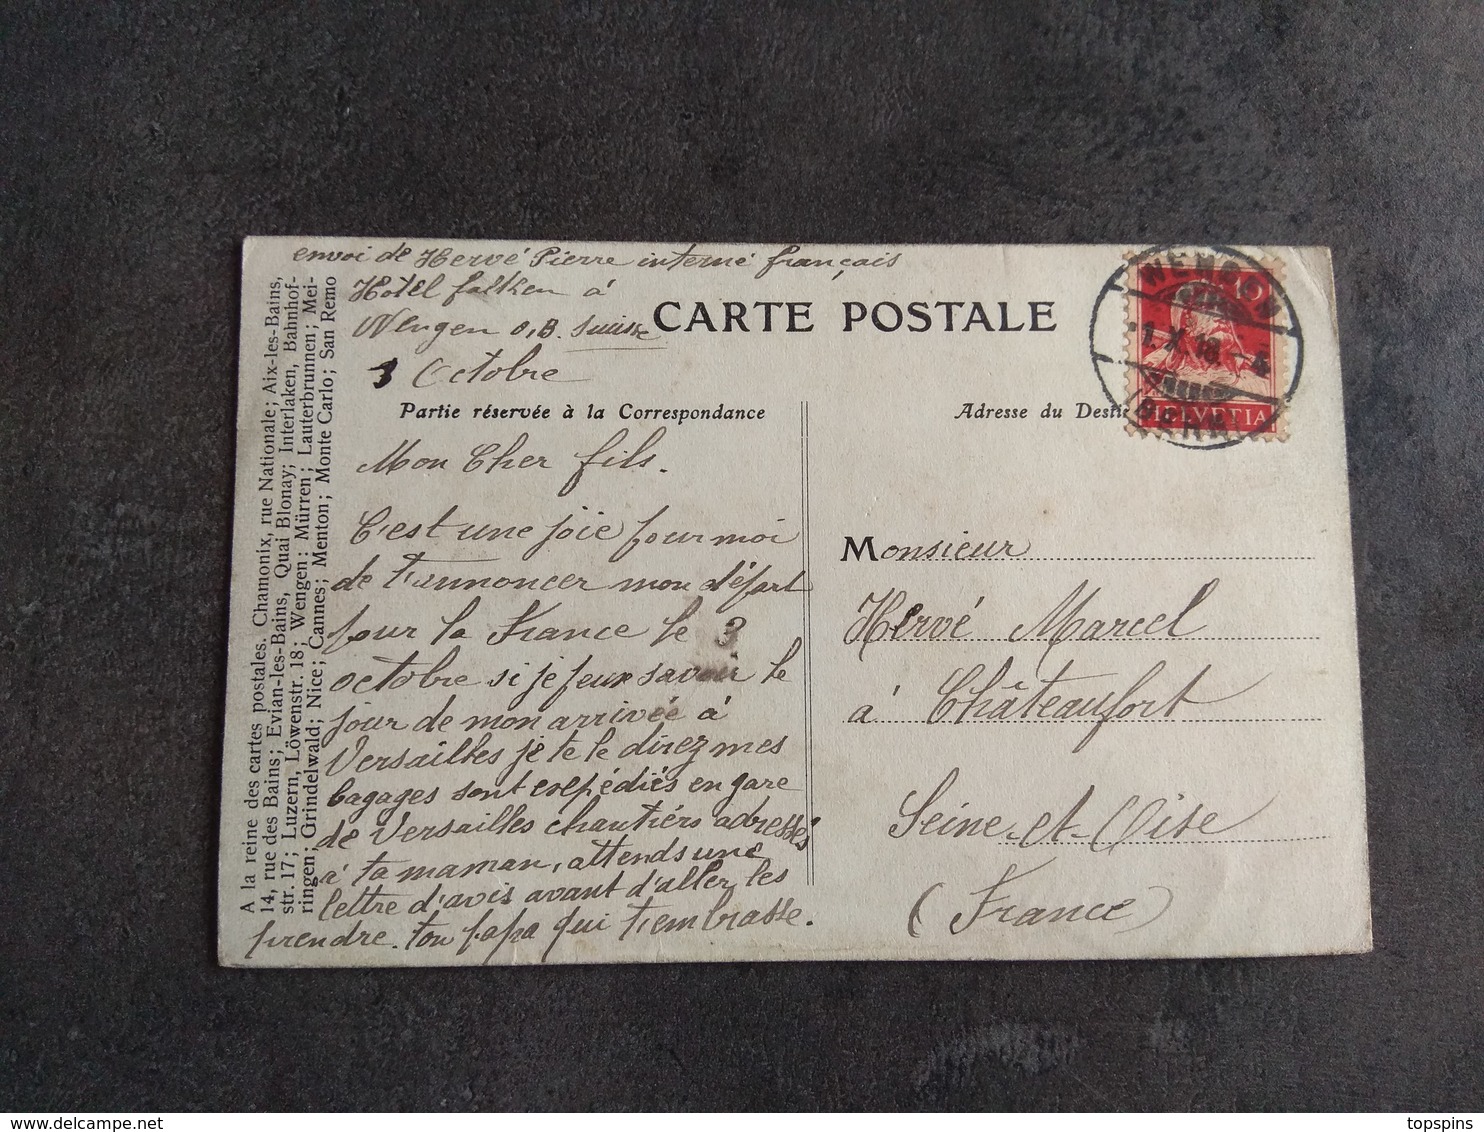 envoi de Hervé Pierre interné français
Hotel falken à
Wengen O,B. Suisse
CARTE POSTALE
1 Octobre
Partie réservée à la Correspondance
Mon Cher fils.
C'est une joie pour moi
de t'annoncer mon départ
pour la France le 3
octobre si je peux savoir le
jour de mon arrivée à
Versailles je te le direz mes
bagages sont expédiés en gare
de Versailles chantiérs adressés
à ta maman, attends une
lettre d'avis avant d'aller les
prendre. ton papa qui t'embrasse.
Adresse du Desti
WENGEN
1.X.18.-4
(BERN)
10
HELVETIA
Monsieur
Hervé Marcel
à Châteaufort
Seine-et-Oise
(France)
A la reine des cartes postales. Chamonix, rue Nationale; Aix-les-Bains,
14, rue des Bains; Evian-les-Bains, Quai Blonay; Interlaken, Bahnhof-
str. 17; Luzern, Löwenstr. 18; Wengen; Mürren; Lauterbrunnen; Mei-
ringen; Grindelwald; Nice; Cannes; Menton; Monte Carlo; San Remo
delcampe.net
topspins